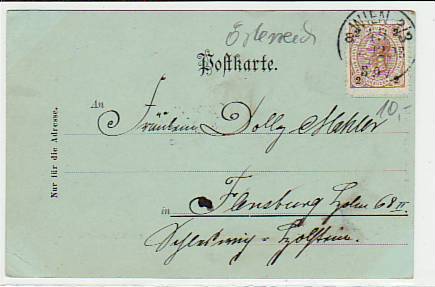 Österreich
8/1 WIEN 2/2
Postkarte.
10,-
An
Fräulein Dolly Mahler
in Flensburg Holm 68 II
Schleswig-Holstein.
Nur für die Adresse.